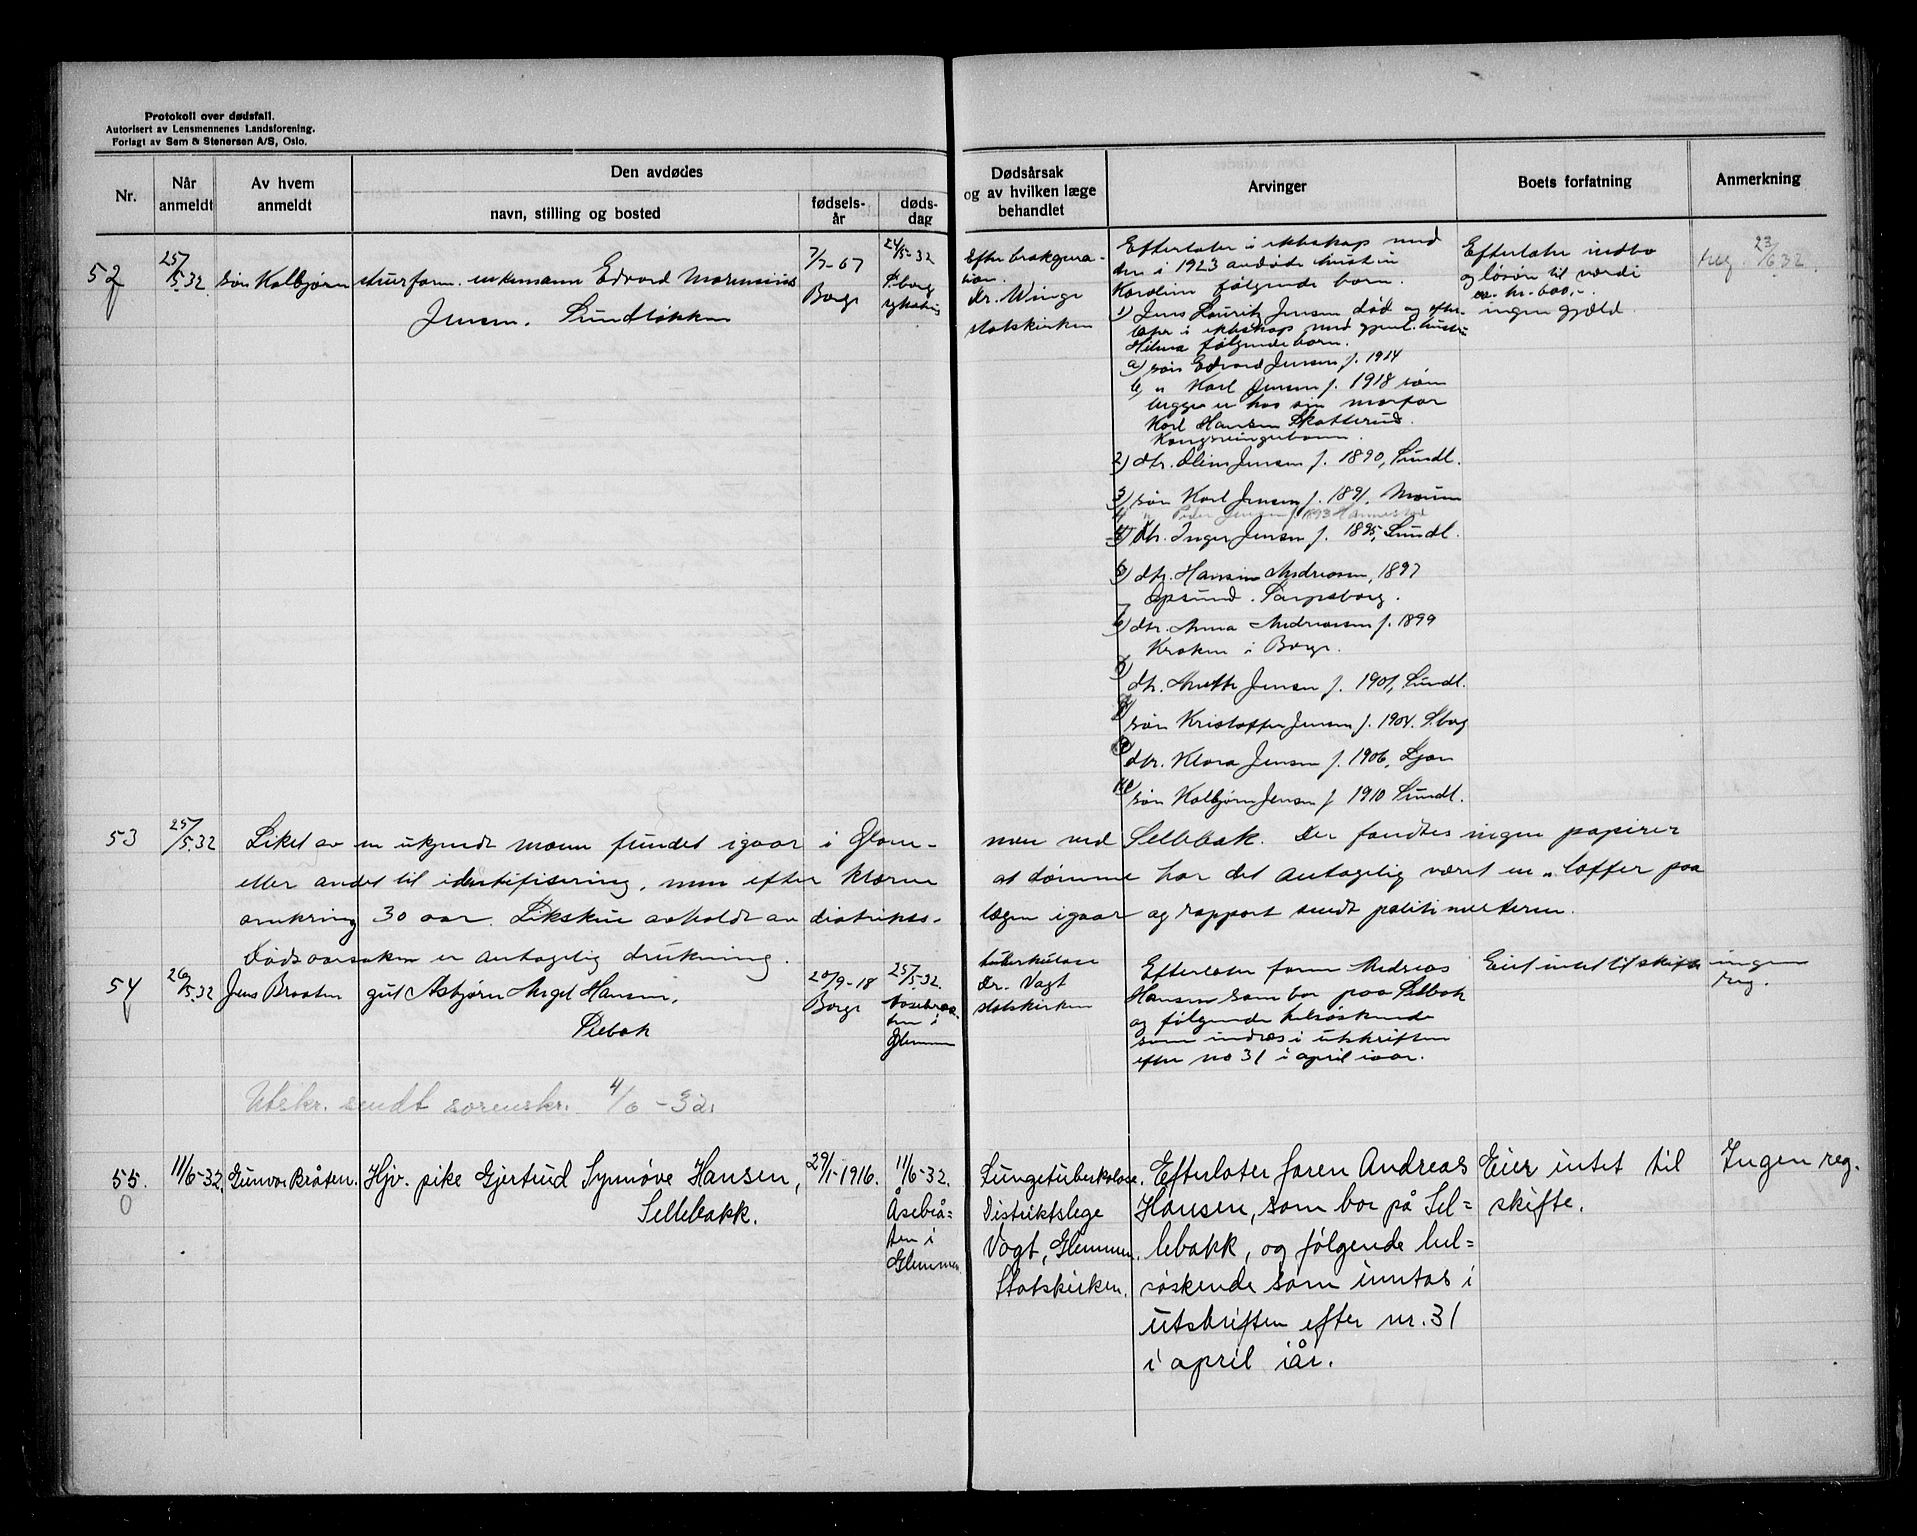 Protokoll over dødsfall.
Autorisert av Lensmennenes Landsforening.
Forlagt av Sem & Stenersen A/S, Oslo.
Nr.
Når
anmeldt
Av hvem
anmeldt
Den avdødes
navn, stilling og bosted
fødsels-
år
døds-
dag
Dødsårsak
og av hvilken læge
behandlet
Arvinger
Boets forfatning
Anmerkning
52
25/5.32
søn Kolbjørn
enkemann Edvard Marensius
Jensen. Sundløkken
7/7-67
Borge
24/5-32
S.borg
sykehus
Efter brokopera-
tion.
Dr. Winge
statskirken
Efterlater i ekteskap med
den i 1923 avdøde hustru
Karoline følgende barn.
1) Jens Lauritz Jensen død og efter-
later i ekteskap med gjenl. hustru
Hilma følgende barn.
a) søn Edvard Jensen f. 1914
b) " Karl Jensen f. 1918 som
begge er hos sin morfar
Karl Hansen Skotterud
Kongsvingerbanen.
2) dtr. Oline Jensen f. 1890, Sundl.
3) søn Karl Jensen f. 1891. Moum
4 " Peder Jensen f. 1893 Hannestad
5) dtr. Inger Jensen f. 1895, Sundl.
6) dtr. Hansine Andreasen, 1897
Opsund. Sarpsborg.
7) dtr. Anna Andreassen f. 1899
Kraken i Borge.
8) dtr. Anette Jensen f. 1901, Sundl.
9) søn Kristoffer Jensen f. 1904. S.borg
10) dtr. Klara Jensen f. 1906, Ljan
11) søn Kolbjørn Jensen f. 1910 Sundl.
Efterlater indbo
og løsøre til værdi
ca. kr. 600,-.
ingen gjæld.
reg. 23/6 32.
53
25/5.32
Liket av en ukjendt mann fundet igaar i Glom-
men ved Sellebak. Der fandtes ingen papirer
eller andet til identifisering, men efter klærne
at dømme har det antagelig været en "loffer" paa
omkring 30 aar. Likskue avholdt av distrikts-
lægen igaar og rapport sendt politimesteren.
Dødsaarsaken er antagelig drukning.
54
26/5.32
Jens Braaten
gut Asbjørn Angel Hansen.
Slebak
20/9-18
Borge
25/5.32.
Aasebraa-
ten i
Glemmen
tuberkulose
Dr. Vogt
statskirken
Efterlater faren Andreas
Hansen som bor paa Selbak
og følgende helsøskende
som indtas i utskriften
efter no 31 i april iaar.
Eiet intet til skifte
ingen
reg.
Utskr. sendt sorenskr. 4/6-32.
55.
11/6-32.
Gunvor Bråten.
Hjv. pike Gjertrud Synnøve Hansen,
Sellebakk.
29/1-1916.
11/6-32.
Åsebrå=
ten i
Glemmen.
Lungetuberkolose.
Distriktslege
Vogt, Glemmen.
Statskirken.
Efterlater faren Andreas
Hansen, som bor på Sel=
lebakk, og følgende hel=
søskende som inntas i
utskriften efter nr. 31
i april iår.
Eier intet til
skifte.
Ingen reg.